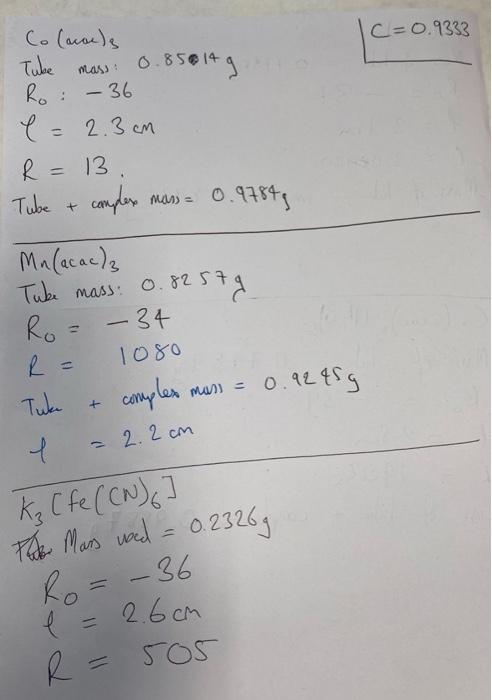 C = 0.9333
Co(acac)3
Tube mass: 0.85014g
R0 : -36
l = 2.3 cm
R = 13.
Tube + complex mass = 0.9784g
Mn(acac)3
Tube mass: 0.8257g
R0 = -34
R = 1080
Tube + complex mass = 0.9245g
l = 2.2 cm
K3[Fe(CN)6]
Mass used = 0.2326g
R0 = -36
l = 2.6 cm
R = 505